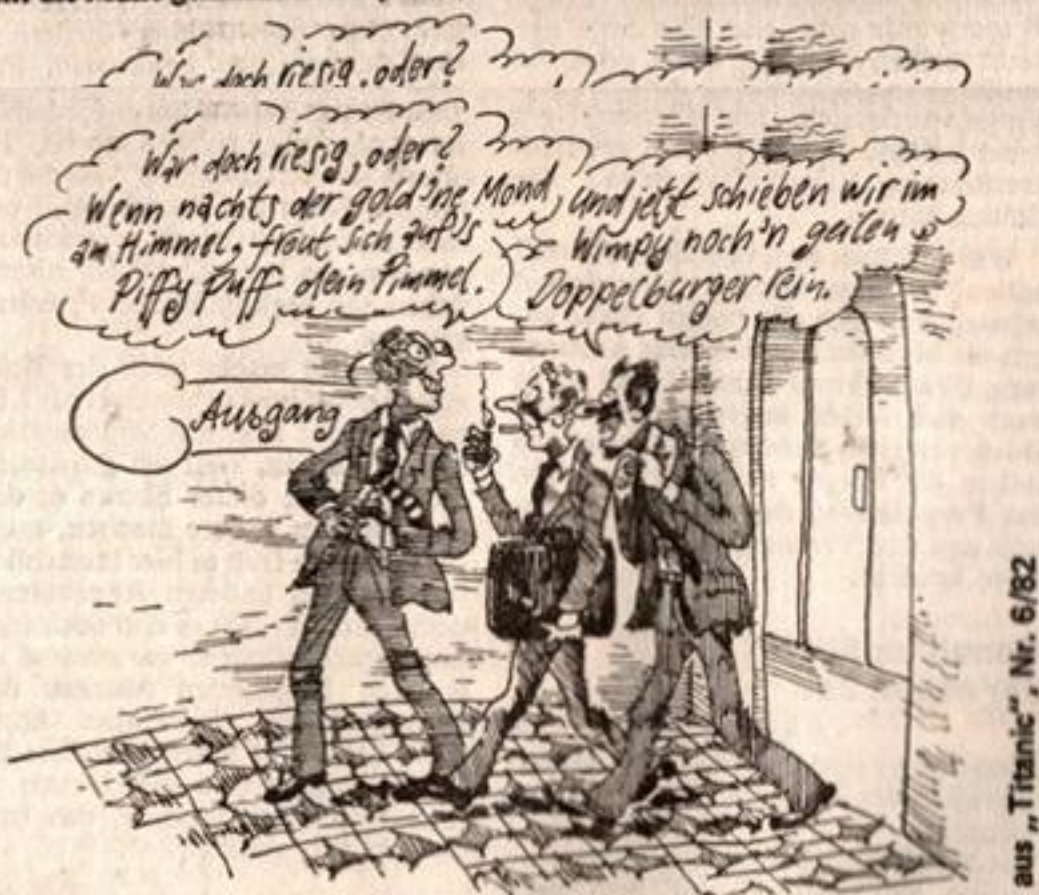 War doch riesig, oder?
War doch riesig, oder?
Wenn nachts der gold'ne Mond
am Himmel, freut sich auf's
Piffy Puff dein Pimmel.
und jetzt schieben wir im
Wimpy noch'n geilen
Doppelburger rein.
Ausgang
aus „Titanic", Nr. 6/82